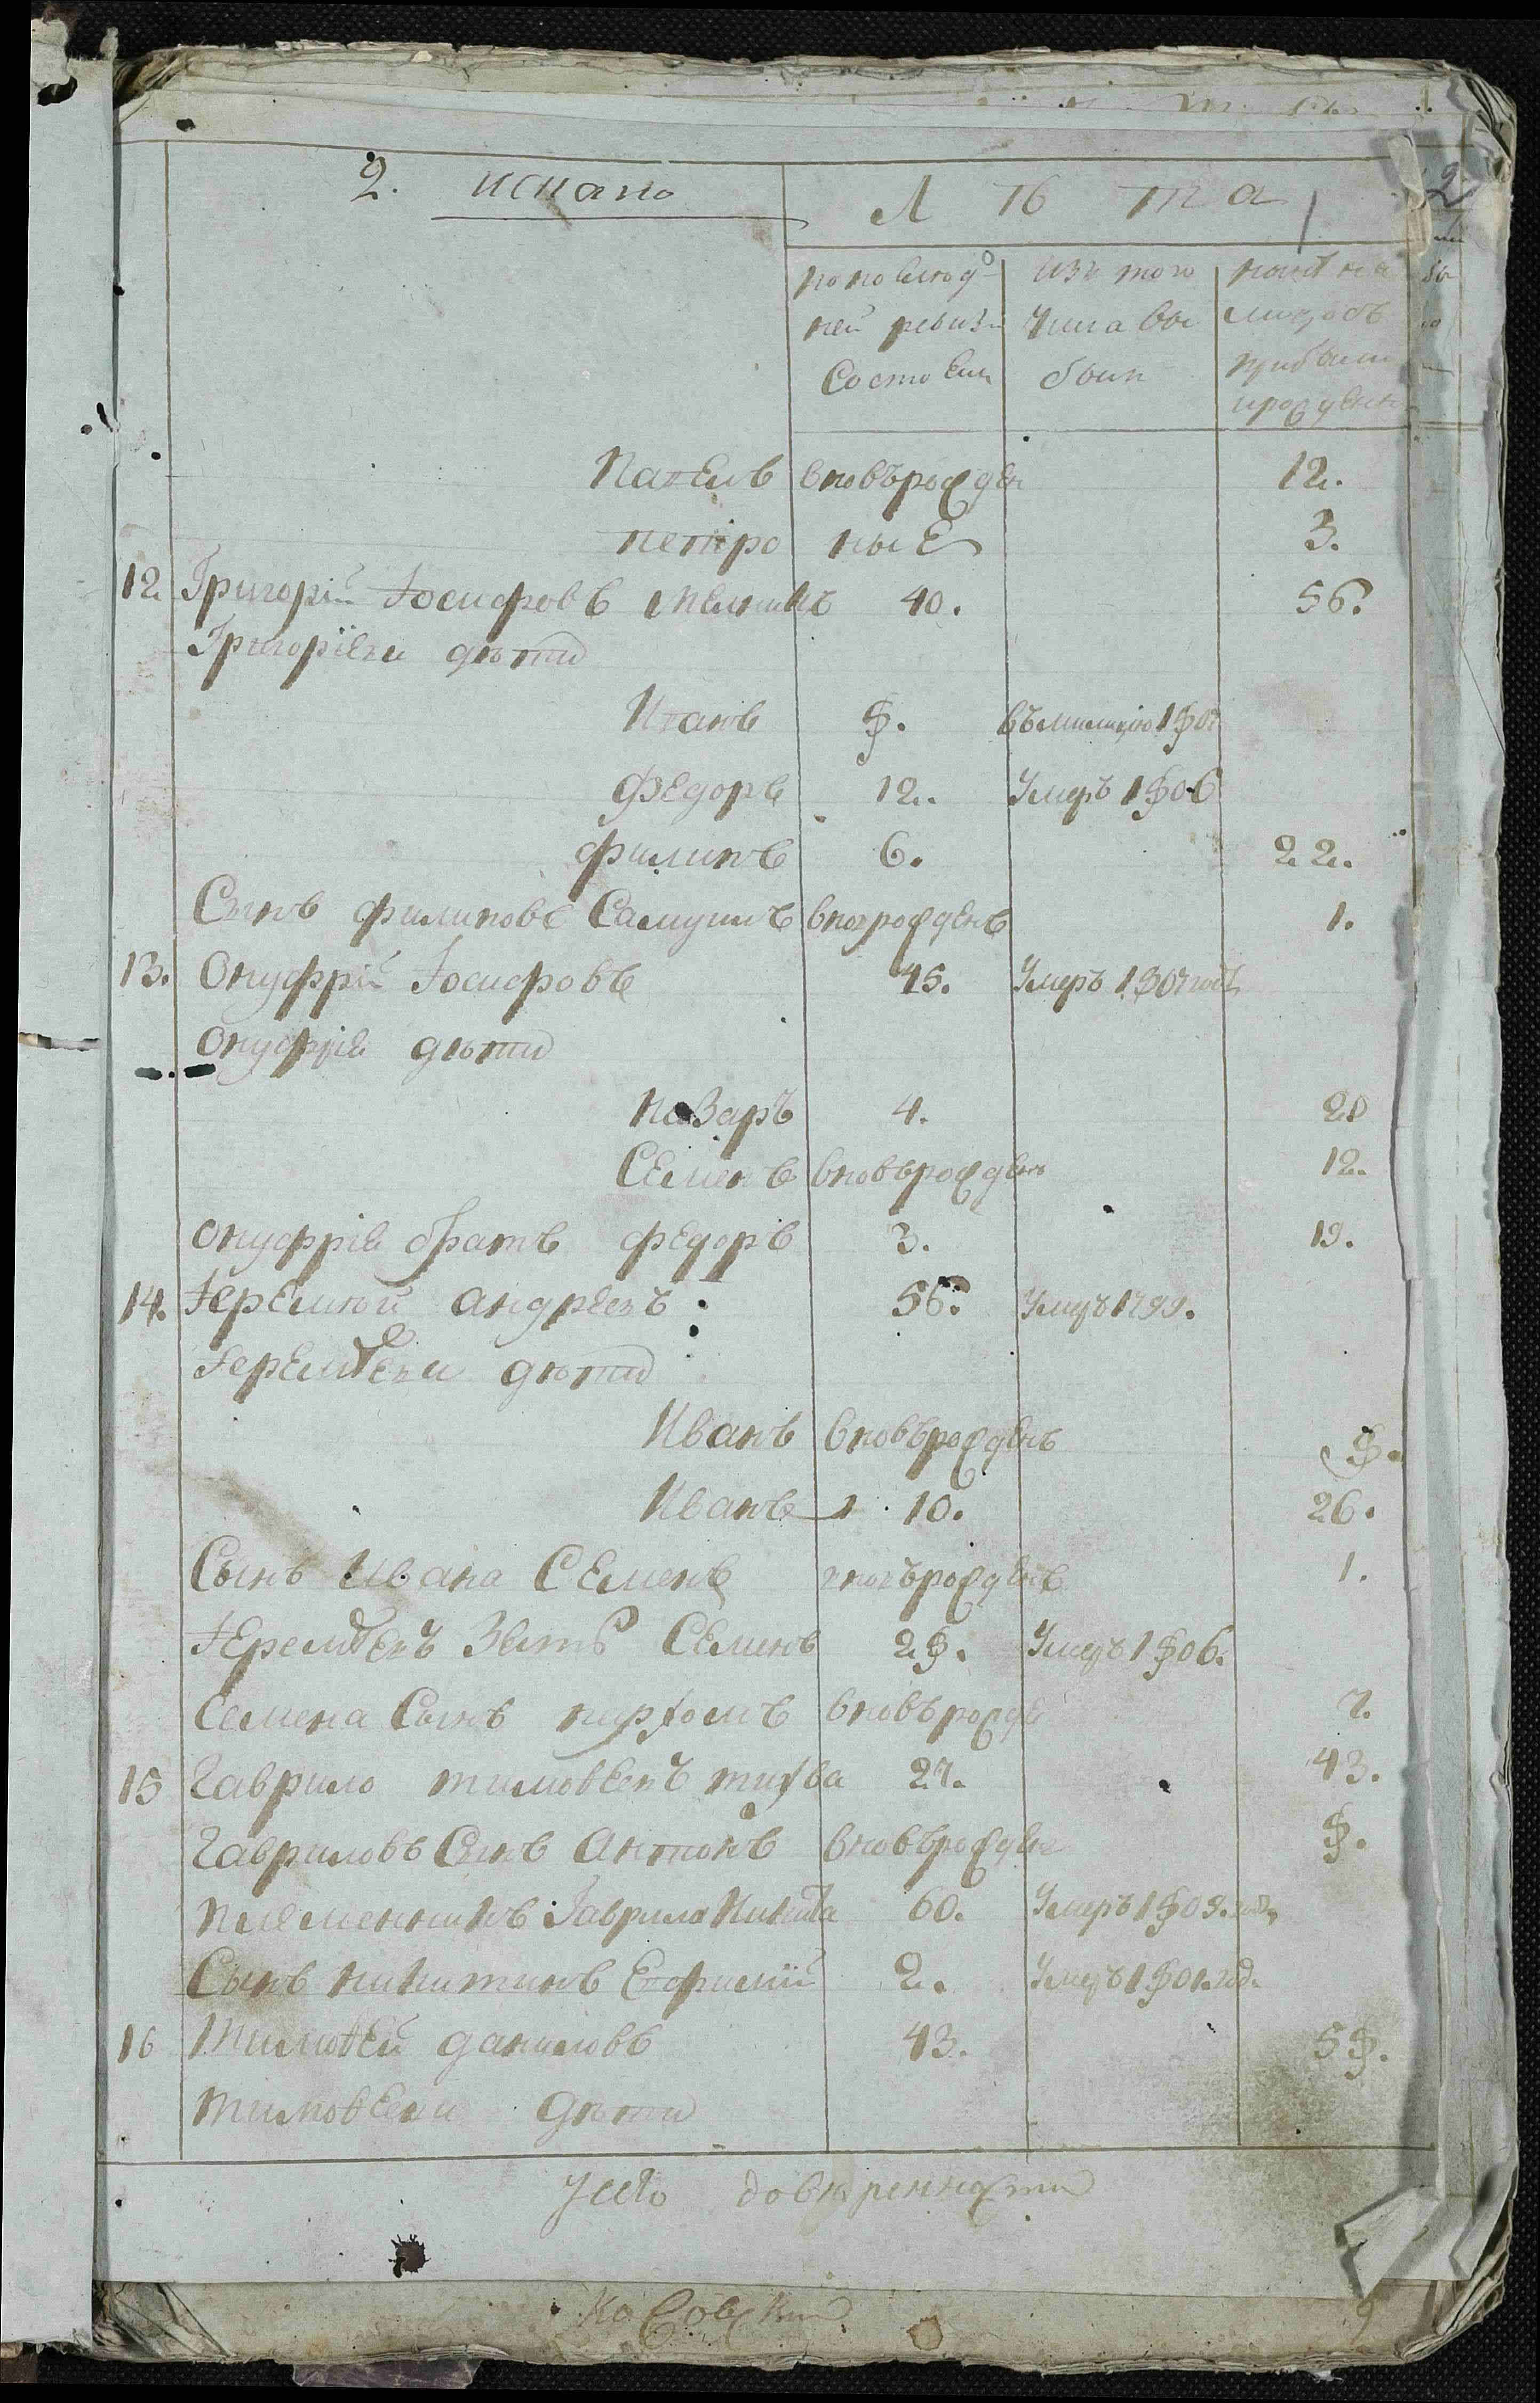 2. 2
Л ѣ та
по послед изъ того ныне на
ней ревизи числа вы лицо съ
Состояли были прибыли
Павелъ вновърожден 12.
петро ные 3.
12 Григорій Іосифовъ Мелникъ 40. 56.
Григоріевы дѣти
Иванъ 8. въ милицію 1807
Федоръ 12. Умеръ 1806
Филипъ 6. 22.
Сынъ Филиповъ Самуилъ вноврожденъ 1.
13. Онуфрій Іосифовъ 45. Умеръ 1807 годѣ
Онуфрія дѣти
Назаръ 4. 20
Семенъ вновърожденъ 12.
Онуфрія братъ Федоръ 3. 19.
14. Іеремѣй андреевъ 56. Умеръ 1799.
Іеремѣевы дѣти
Иванъ вновърожденъ 8.
Иванъ 10. 26.
Сынъ Ивана Семенъ вновърожденъ 1.
Іеремѣевъ Зять Семенъ 28. Умеръ 1806.
Семена Сынъ пархомъ вновърожде 7.
15 Гаврило тимовеевъ 27. 43.
Гавриловъ Сынъ Антонъ вновърожден 8.
племенникъ Гаврила Никита 60. Умеръ 1809. год
Сынъ никитинъ Евфимій 2. Умеръ 1801. год.
16 Тимовей даниловъ 43. 58.
тимовееви дѣти
доверенности